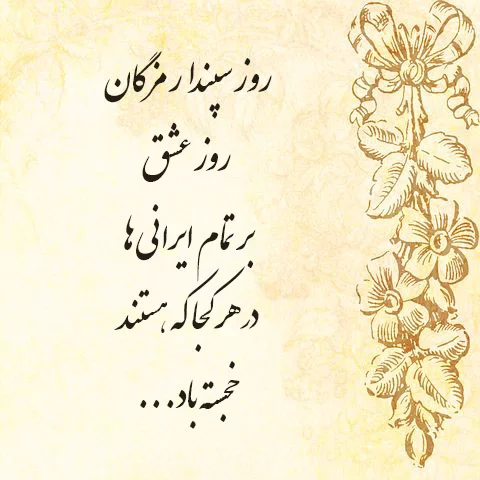 روز سپندارمزگان
روز عشق
بر تمام ایرانی ها
در هر کجا که هستند
خجسته باد...